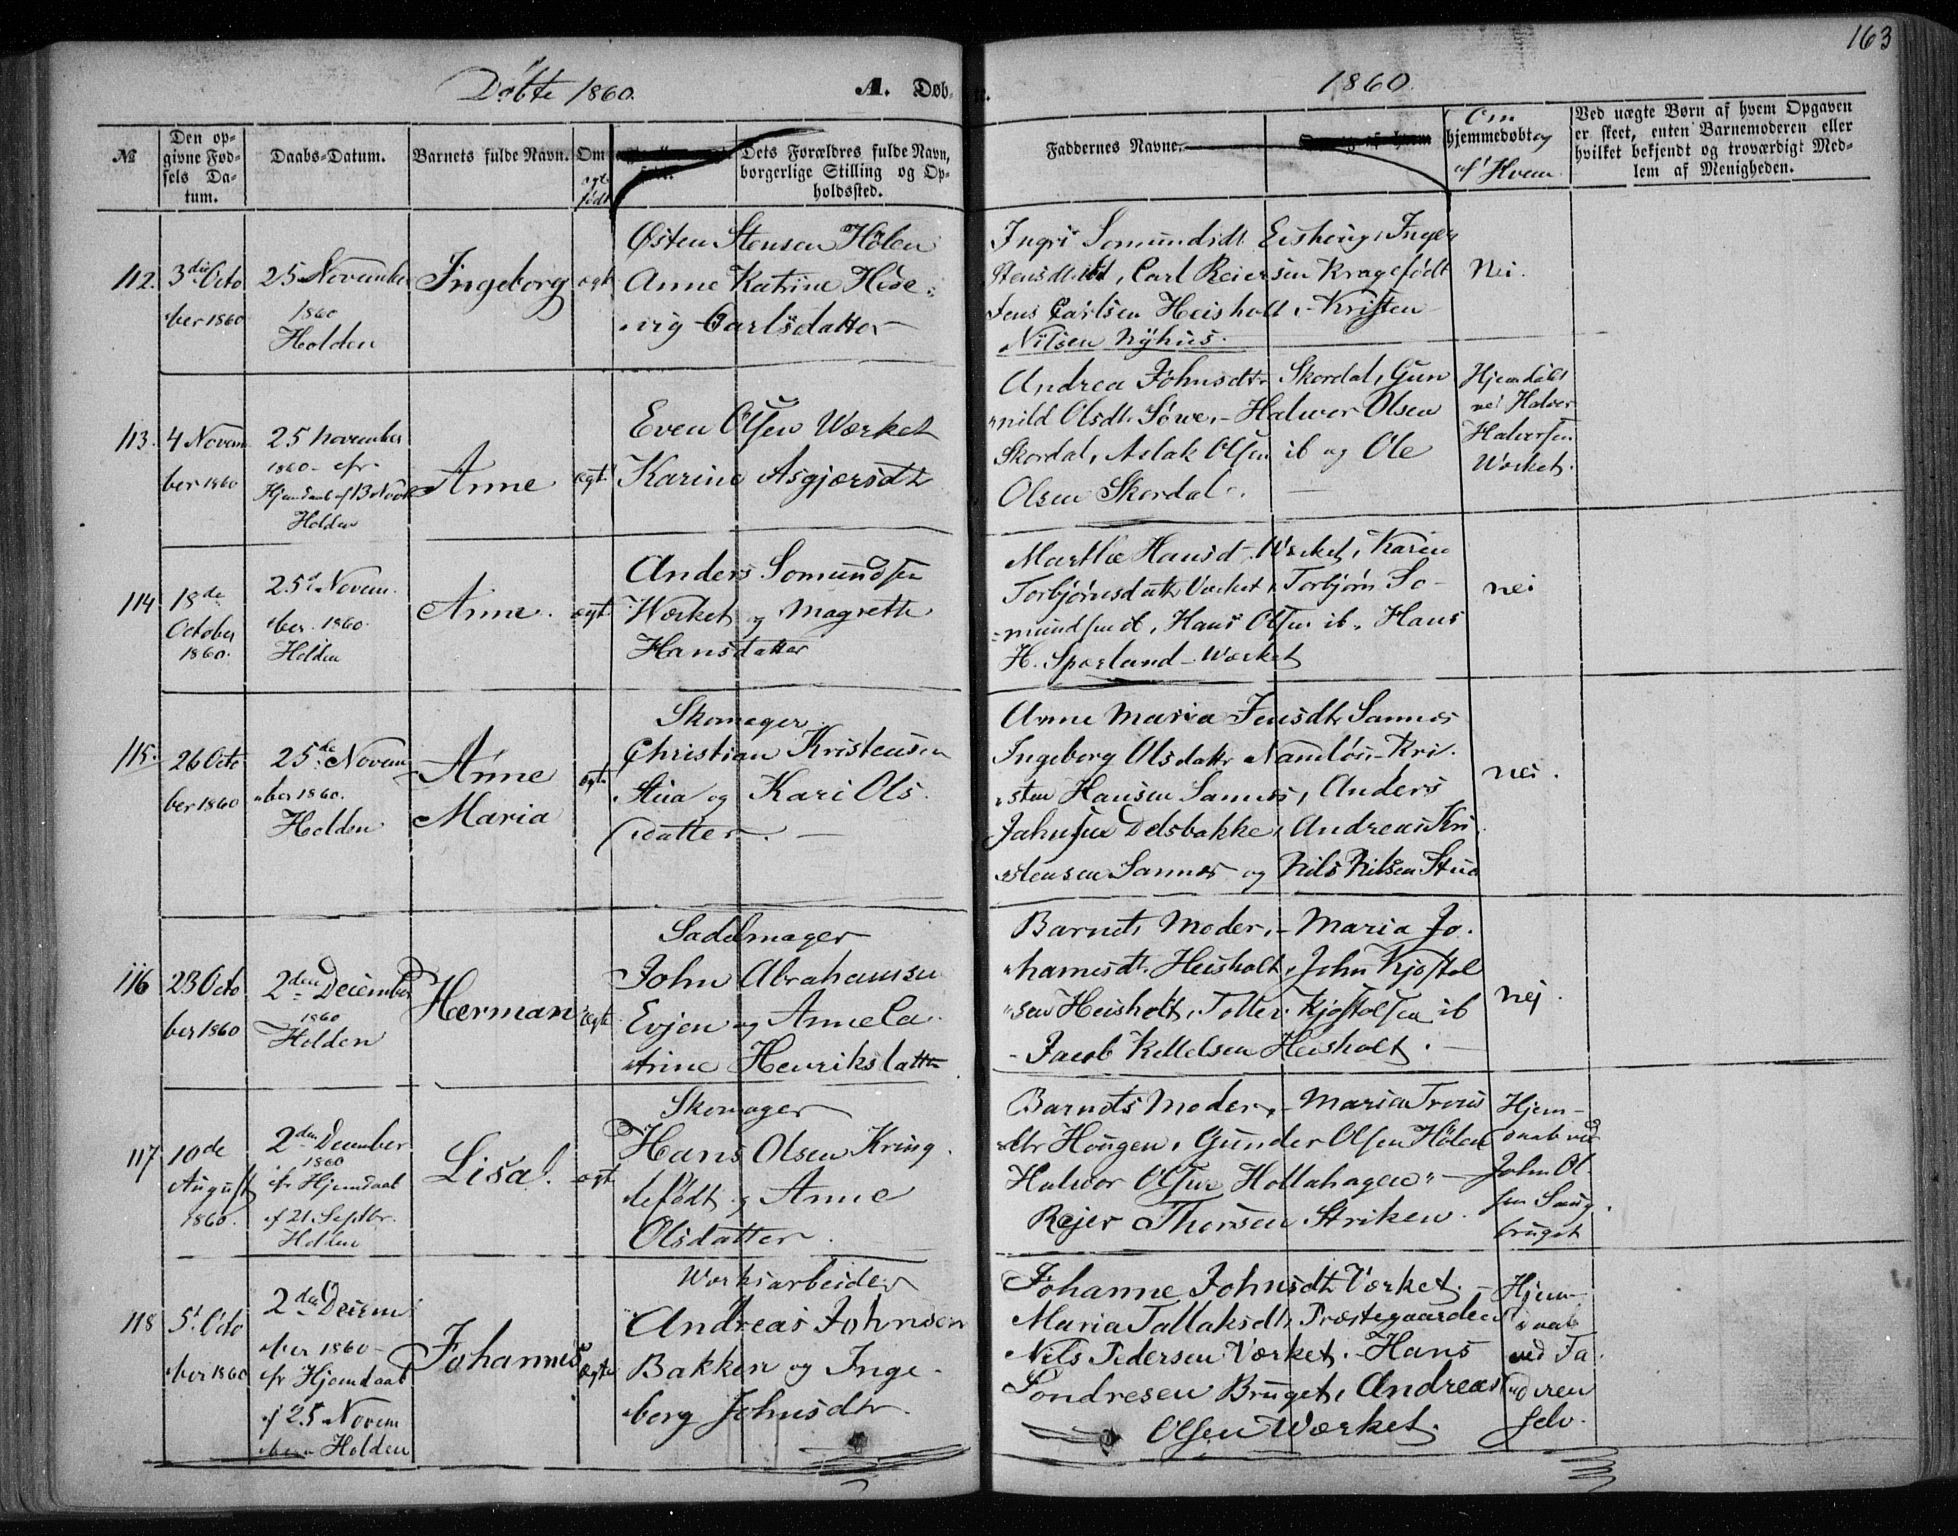 163
Døbte 1860.
A. Døb-
1860.
№
Den op-
givne Fød-
sels Da-
tum.
Daabs-Datum.
Barnets fulde Navn.
Om
ægte
født
Dets Forældres fulde Navn,
borgerlige Stilling og Op-
holdssted.
Faddernes Navne.
Om
hjemmedøbt og
af Hvem
Ved uægte Børn af hvem Opgaven
er skeet, enten Barnemoderen eller
hvilket bekjendt og troværdigt Med-
lem af Menigheden.
112.
3die Octo
ber 1860
25 November
1860
Holden
Ingeborg
ægt
Østen Stensen Hølen
Anne Katrine Hed-
vig Carlsdatter
Ingri Somundsdt. Eishoug, Inger
Stensdt. ibd, Carl Reiersen Kragefødt
Jens Carlsen Heisholt, Kristen
Nilsen Nÿhus.
Nei.
113.
4 Novem
ber 1860
25 november
1860 - efr.
Hjemdaab af 13 Novbr
Holden
Anne
ægt
Even Olsen Værket
Karine Asgjersdt
Andrea Johnsdtr Skordal, Gun
nild Olsdt. Søve, - Halvor Olsen
Skordal, Aslak Olsen ib og Ole
Olsen Skordal.
Hjemdøbt
ved Halvor
Halvorsen
Værket.
114
18de
October
1860.
25de Novem.
ber. 1860.
Holden
Anne.
ægt
Anders Somundsen
Værket og Magrethe
Hansdatter
Marthe Hansd. Værket, Karen
Torbjørnsdatter Værket, Torbjørn So-
mundsen ib, Hans Olsen ib, Hans
H. Sporland - Værket
nei
115.
26 Octo
ber 1860
25de Novem
ber 1860.
Holden
Anne
Maria
ægte
Skomager
Christian Kristensen
Stua og Kari Ols.
datter. -
Anne Maria Jensdtr Sannes
Ingeborg Olsdattr Namløs - Kri.
sten Hansen Sannes, Anders
Jahnsen Delsbakke, Andreas Kri
stensen Sannes og Nils Nilsen Stua
nei.
116
23 Octo
ber 1860
2den December
1860
Holden
Herman
ægte
Sadelmager
John Abrahamsen
Evjen og Anne Ca.
trine Henriksdatter
Barnets Moder, - Maria Jo.
hannesdt. Heisholt, John Kjøstol
sen Heisholt, Tollev Kjøstolsen ib
- Jacob Kittelsen Heisholt. -
nej.
117
10de
August
1860.
2den December
1860
efr Hjemdaab
af 21. Septbr.
Holden
Lisa.
ægt
Skomager
Hans Olsen Kring.
lefødt og Anne
Olsdatter.
Barnets Moder, - Maria Trons
dtr Hougen, Gunder Olsen Hølen
Halvor Olsen Hollahagen -
Rejer Thorsen Striken.
Hjem-
daab ved
John Ol.
sen Saug
bruget
118
5te Octo
ber 1860
2den Decem
ber 1860 -
efr Hjemdaab
af 25 Novem
ber Holden
Johannes
ægte
Værksarbeider
Andreas Johnsen
Bakken og Inge.
borg Johnsdtr.
Johanne Johnsdtr Værket. -
Maria Tallaksdt, Præstegaarden
Nils Pedersen Værket. - Hans
Sondresen Bruget, Andreas
Olsen Værket.
Hjem-
daab
ved Fa.
deren
selv.